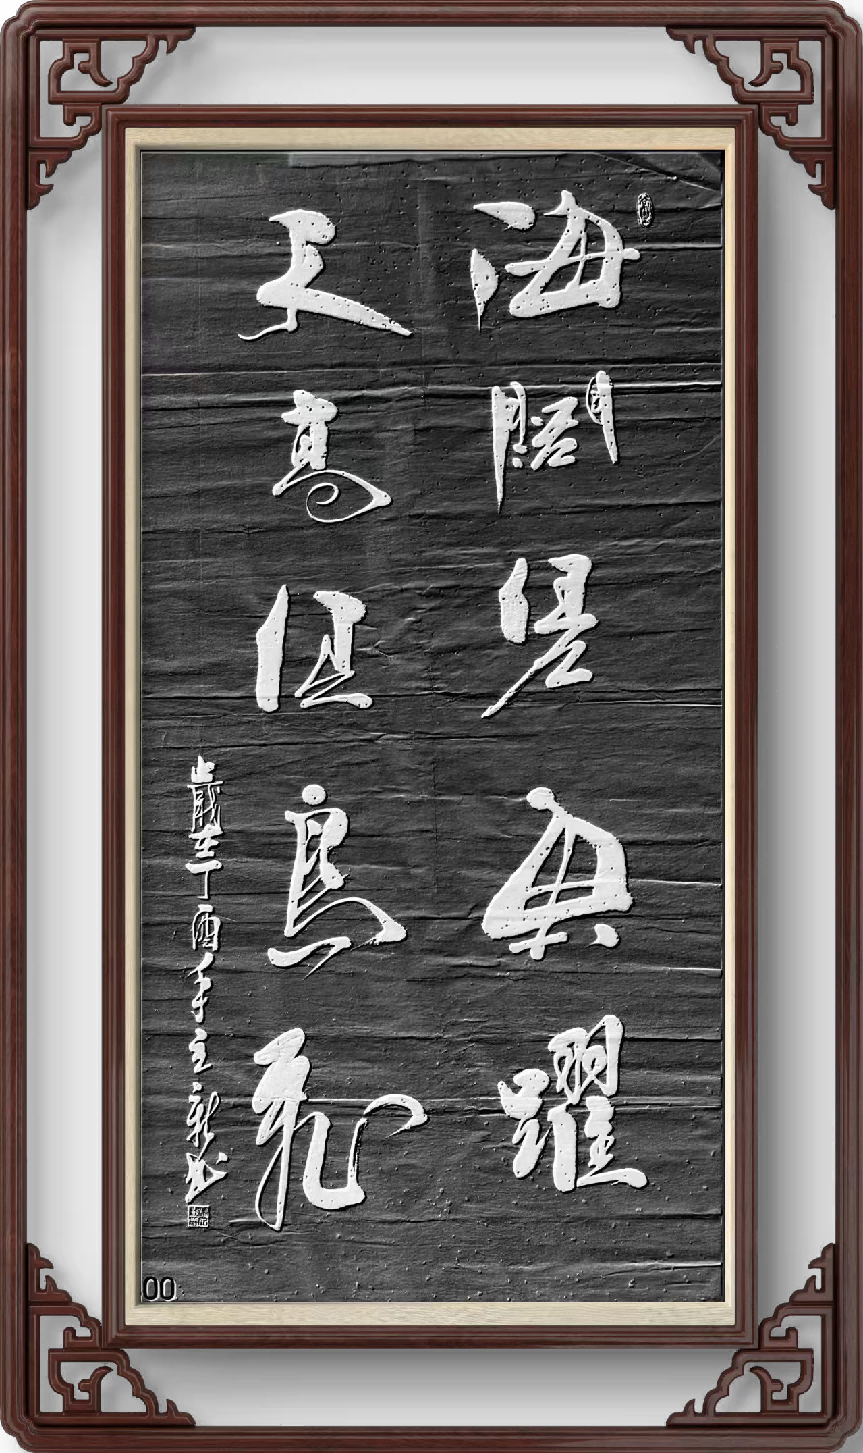 海闊魚躍
天高任鳥飛
歲在丁酉年立书
00